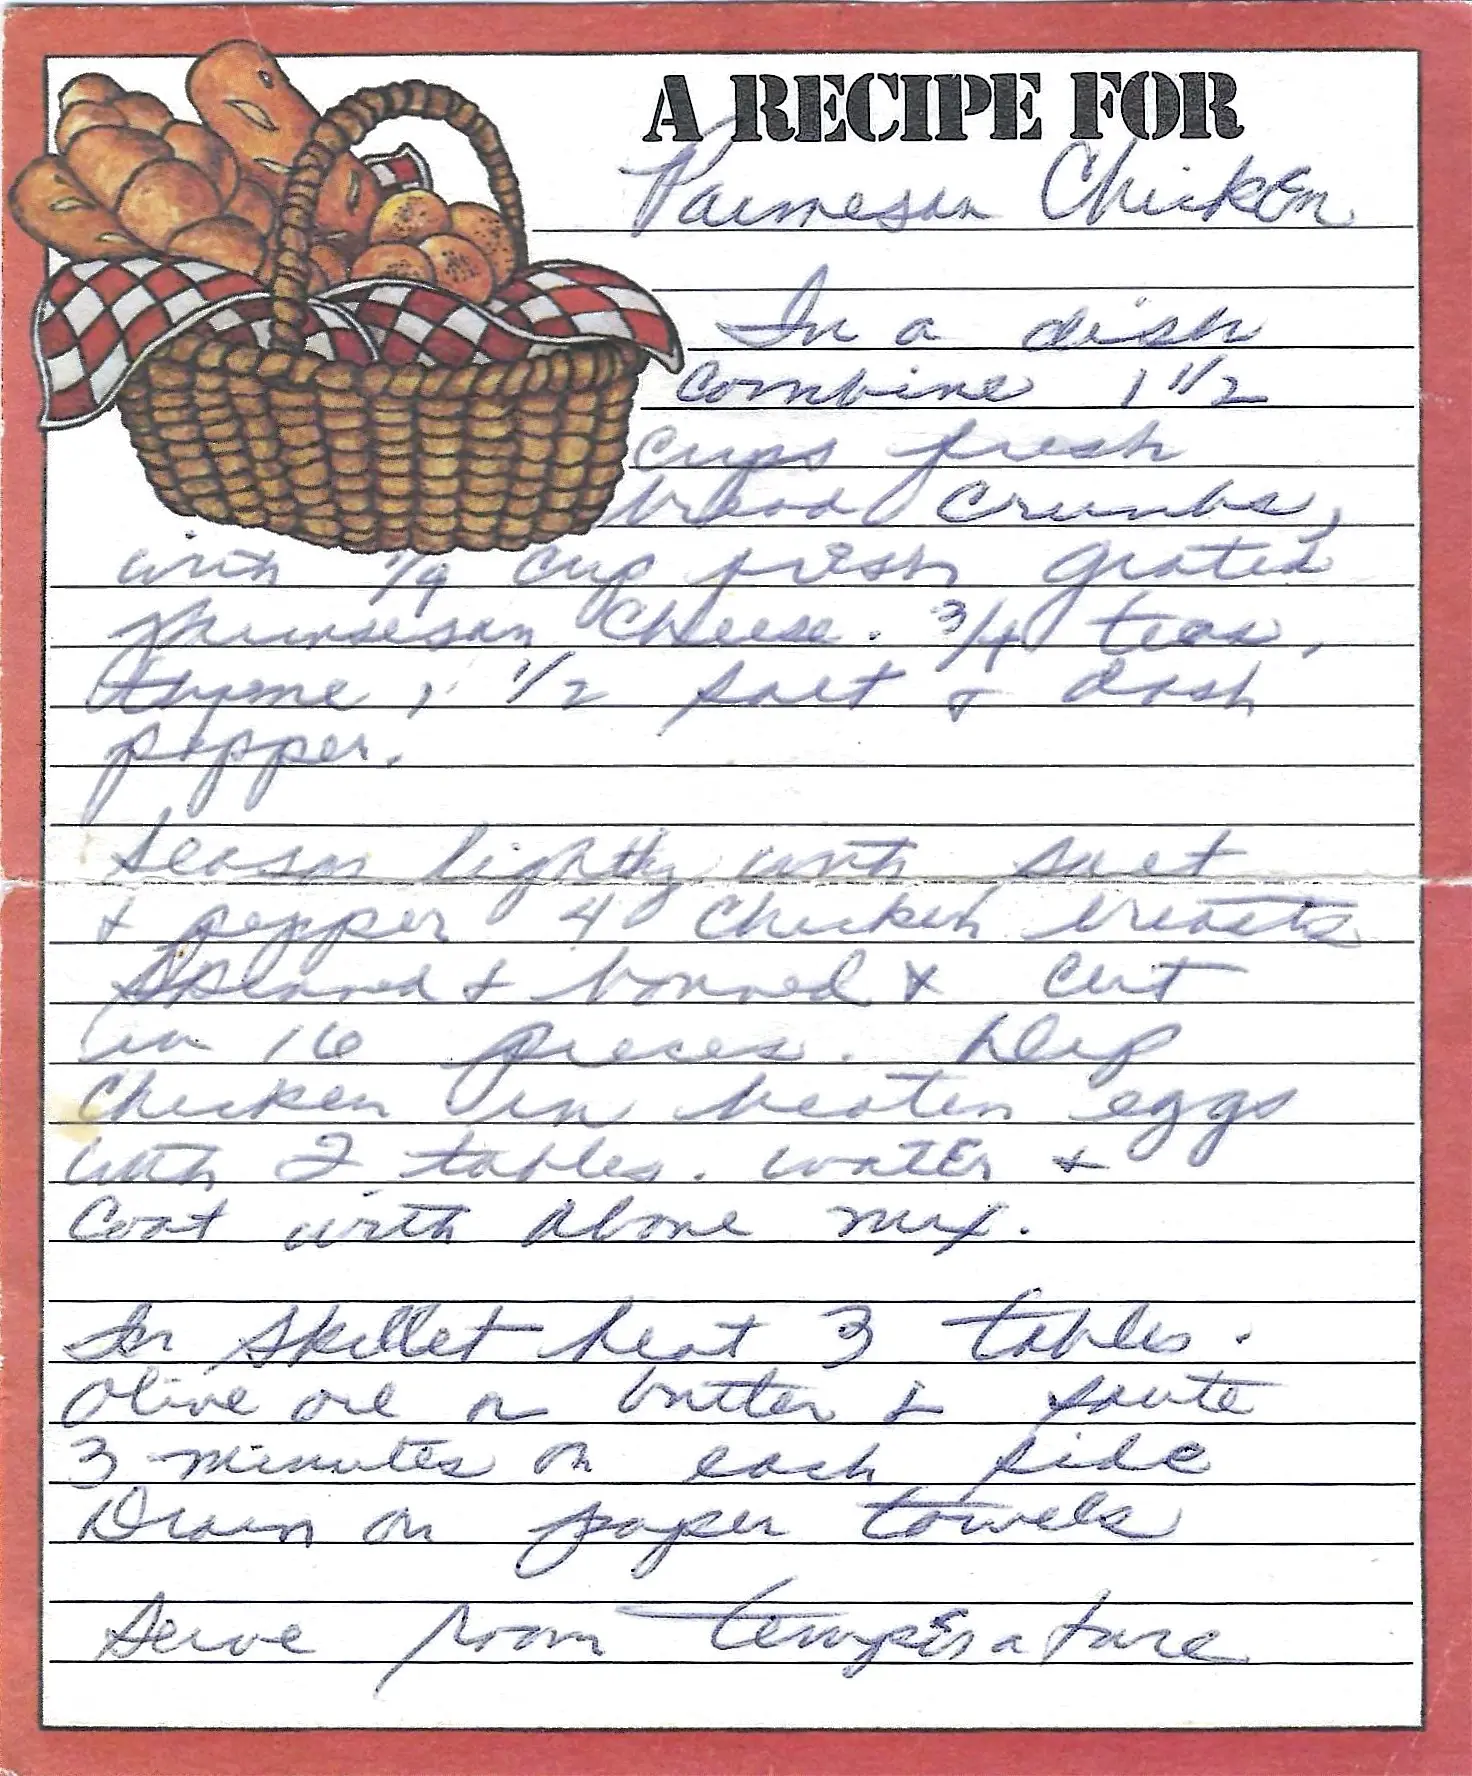 A RECIPE FOR
Parmesan Chicken
In a dish
combine 1 1/2
cups fresh
bread crumbs,
with 1/4 cup fresh grated
cheese. 3/4 teas,
thyme, 1/2 salt & dash
pepper.
Season lightly with salt
& pepper 4 chicken breasts
& bonned & cut
in 16 pieces. Dip
chicken in beaten eggs
with 2 tables. water &
coat with above mix.
In skillet heat 3 tables.
olive oil or butter & saute
3 minutes on each side
Drain on paper towels
Serve room temperature